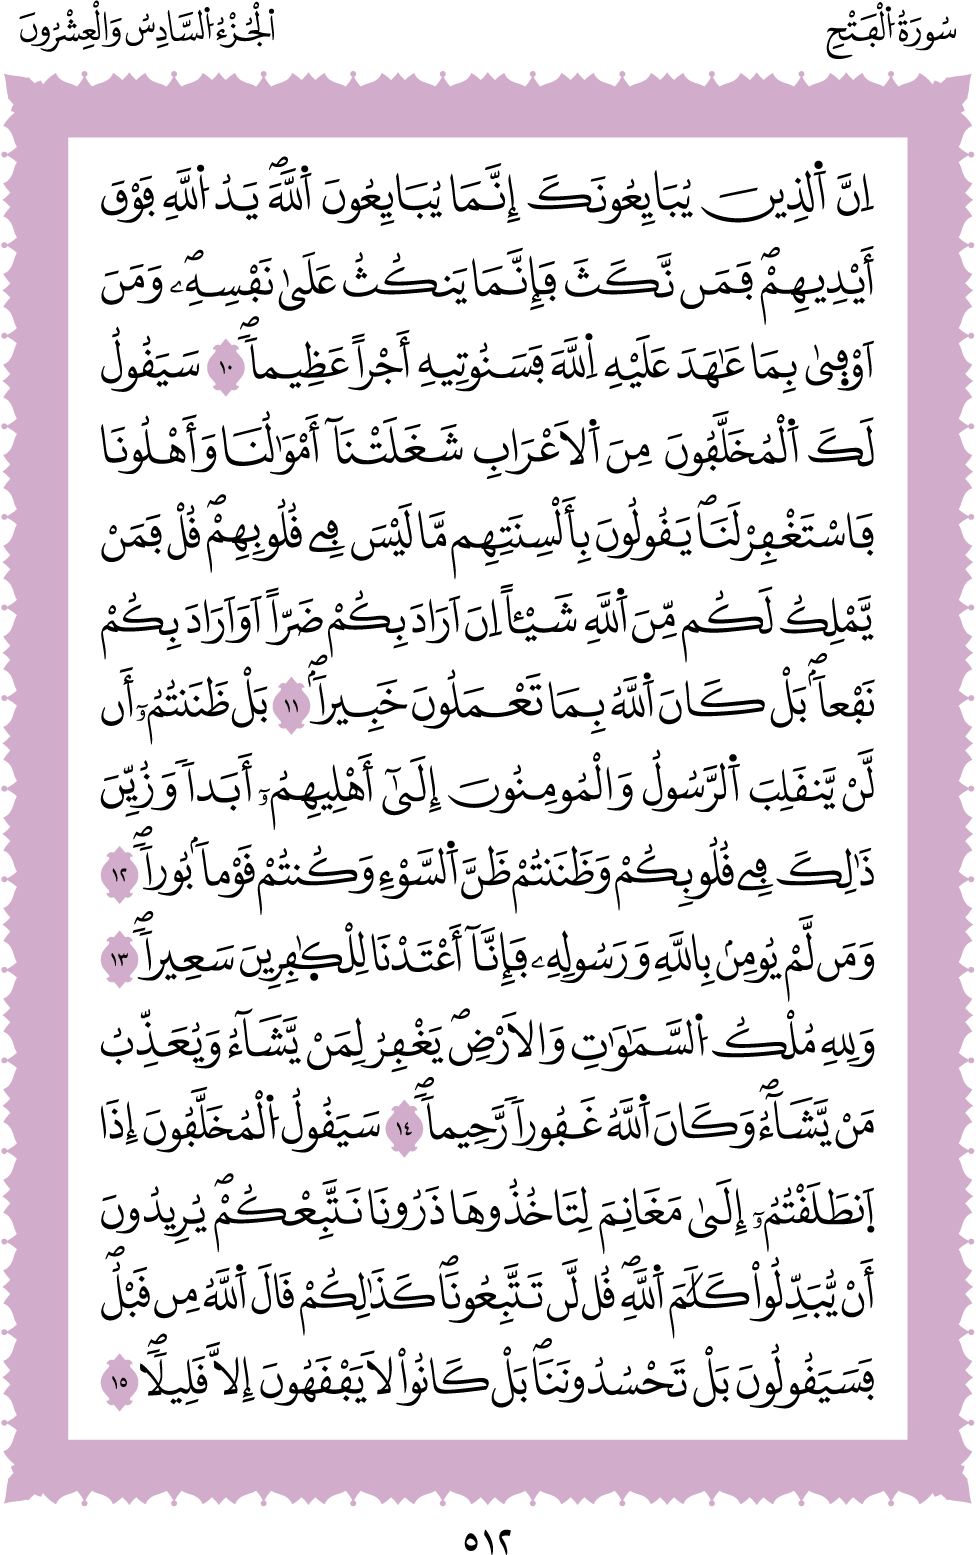 سُورَةُ اُ۬لْفَتْحِ
اَ۬لْجُزْءُ اُ۬لسَّادِسُ وَالْعِشْرُونَ
اِنَّ اَ۬لذِينَ يُبَايِعُونَكَ إِنَّمَا يُبَايِعُونَ اَ۬للَّهَۖ يَدُ اُ۬للَّهِ فَوْقَ
أَيْدِيهِمْۖ فَمَن نَّكَثَ فَإِنَّمَا يَنكُثُ عَلَىٰ نَفْسِهِۦۖ وَمَنَ
اَوْفۭيٰ بِمَا عَٰهَدَ عَلَيْهِ اِ۬للَّهَ فَسَنُوتِيهِ أَجْراً عَظِيماٗۖ ١٠ سَيَقُولُ
لَكَ اَ۬لْمُخَلَّفُونَ مِنَ اَ۬لَاعْرَابِ شَغَلَتْنَآ أَمْوَٰلُنَا وَأَهْلُونَا
فَاسْتَغْفِرْ لَنَاۖ يَقُولُونَ بِأَلْسِنَتِهِم مَّا لَيْسَ فِے قُلُوبِهِمْۖ قُلْ فَمَنْ
يَّمْلِكُ لَكُم مِّنَ اَ۬للَّهِ شَيْـٔاً اِنَ اَرَادَ بِكُمْ ضَرّاً اَوَ اَرَادَ بِكُمْ
نَفْعاَۢۖ بَلْ كَانَ اَ۬للَّهُ بِمَا تَعْمَلُونَ خَبِيراَۢۖ ١١ بَلْ ظَنَنتُمُۥٓ أَن
لَّنْ يَّنقَلِبَ اَ۬لرَّسُولُ وَالْمُومِنُونَ إِلَىٰٓ أَهْلِيهِمُۥٓ أَبَداٗ وَزُيِّنَ
ذَٰلِكَ فِے قُلُوبِكُمْ وَظَنَنتُمْ ظَنَّ اَ۬لسَّوْءِ وَكُنتُمْ قَوْماَۢ بُوراٗۖ ١٢
وَمَن لَّمْ يُومِنۢ بِاللَّهِ وَرَسُولِهِۦ فَإِنَّآ أَعْتَدْنَا لِلْكٰ۪فِرِينَ سَعِيراٗۖ ١٣
وَلِلهِ مُلْكُ اُ۬لسَّمَٰوَٰتِ وَالَارْضِۖ يَغْفِرُ لِمَنْ يَّشَآءُ وَيُعَذِّبُ
مَنْ يَّشَآءُۖ وَكَانَ اَ۬للَّهُ غَفُوراٗ رَّحِيماٗۖ ١٤ سَيَقُولُ اُ۬لْمُخَلَّفُونَ إِذَا
اَ۪نطَلَقْتُمُۥٓ إِلَىٰ مَغَانِمَ لِتَاخُذُوهَا ذَرُونَا نَتَّبِعْكُمْۖ يُرِيدُونَ
أَنْ يُّبَدِّلُواْ كَلَٰمَ اَ۬للَّهِۖ قُل لَّن تَتَّبِعُونَاۖ كَذَٰلِكُمْ قَالَ اَ۬للَّهُ مِن قَبْلُۖ
فَسَيَقُولُونَ بَلْ تَحْسُدُونَنَاۖ بَلْ كَانُواْ لَا يَفْقَهُونَ إِلَّا قَلِيلاٗۖ ١٥
٥١٢